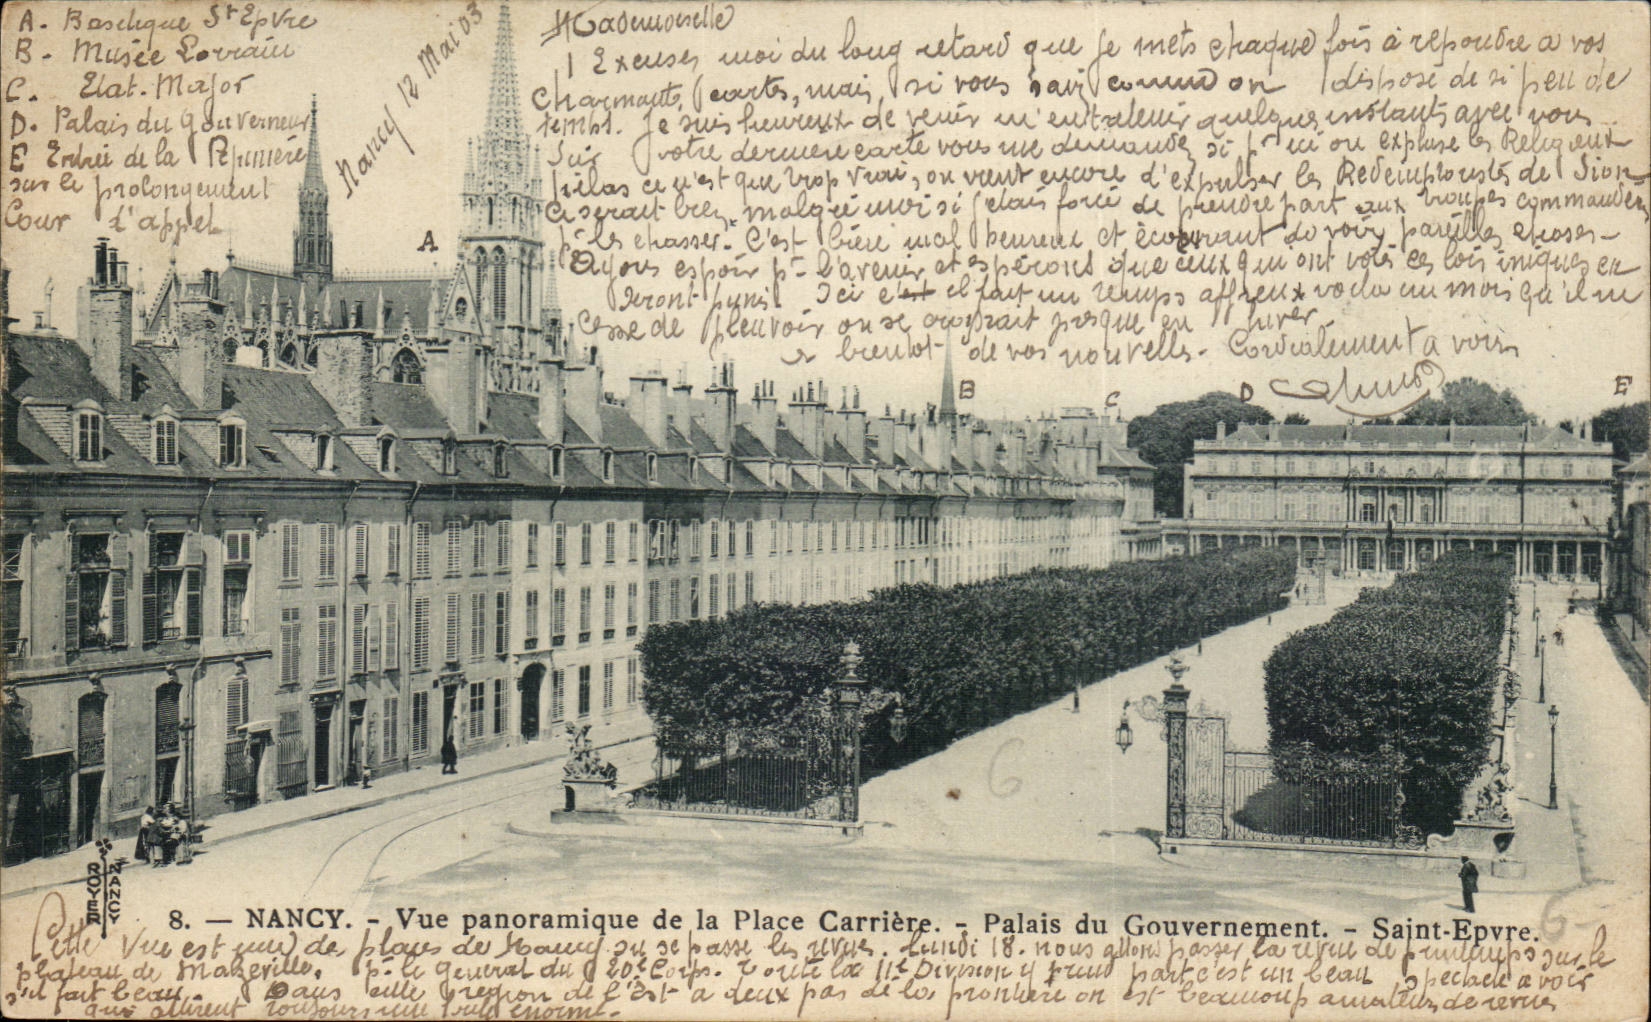 A. Basilique St Epvre
B. Musée Lorrain
C. Etat-Major
D. Palais du Gouverneur
E Entrée de la Pépinière
sur le prolongement
Cour d'appel
Nancy 12 Mai 03
Mademoiselle
Excusez moi du long retard que je mets chaque fois à répondre a vos
charmantes cartes, mais, si vous savez comme on dispose de si peu de
temps. Je suis heureux de venir m'entretenir quelques instants avec vous
Sur votre derniere carte vous me demandez si pr ici on expluse les Religieux
hélas ce n'est que trop vrai, on vient encore d'expulser les Redemptoristes de Sion
Ce serait bien malgré moi si j'étais forcé de prendre part aux troupes commandées
pr les chasser. C'est bien malheureux et écœurant de voir pareilles choses-
Ayons espoir pr l'avenir et espérons que ceux qui ont votés ces lois iniques en
seront punis. Ici c'est il fait un temps affreux voila un mois qu'il ne
cesse de pleuvoir on se croirait presque en hiver
a bientot de vos nouvelles. Cordialement a vous
A
B
C
D
E
6
ROYER NANCY
8. — NANCY. - Vue panoramique de la Place Carrière. - Palais du Gouvernement. - Saint-Epvre.
6
Cette Vue est une de places de Nancy ou se passe les revues. Lundi 18. nous allons passer la revue de printemps sur le
plateau de Malzéville, pr le général du 20e Corps. Toute la 11e Division y prend part c'est un beau spectacle a voir
s'il fait beau. Dans cette région de l'Est a deux pas de la frontière on est beaucoup amateur de revues
qui attirent toujours une foule énorme.